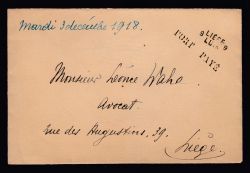 Mardi 3 décembre 1918.
LIEGE
PORT PAYÉ
Monsieur Léonce Waha
Avocat
rue des Augustins. 39.
Liège.